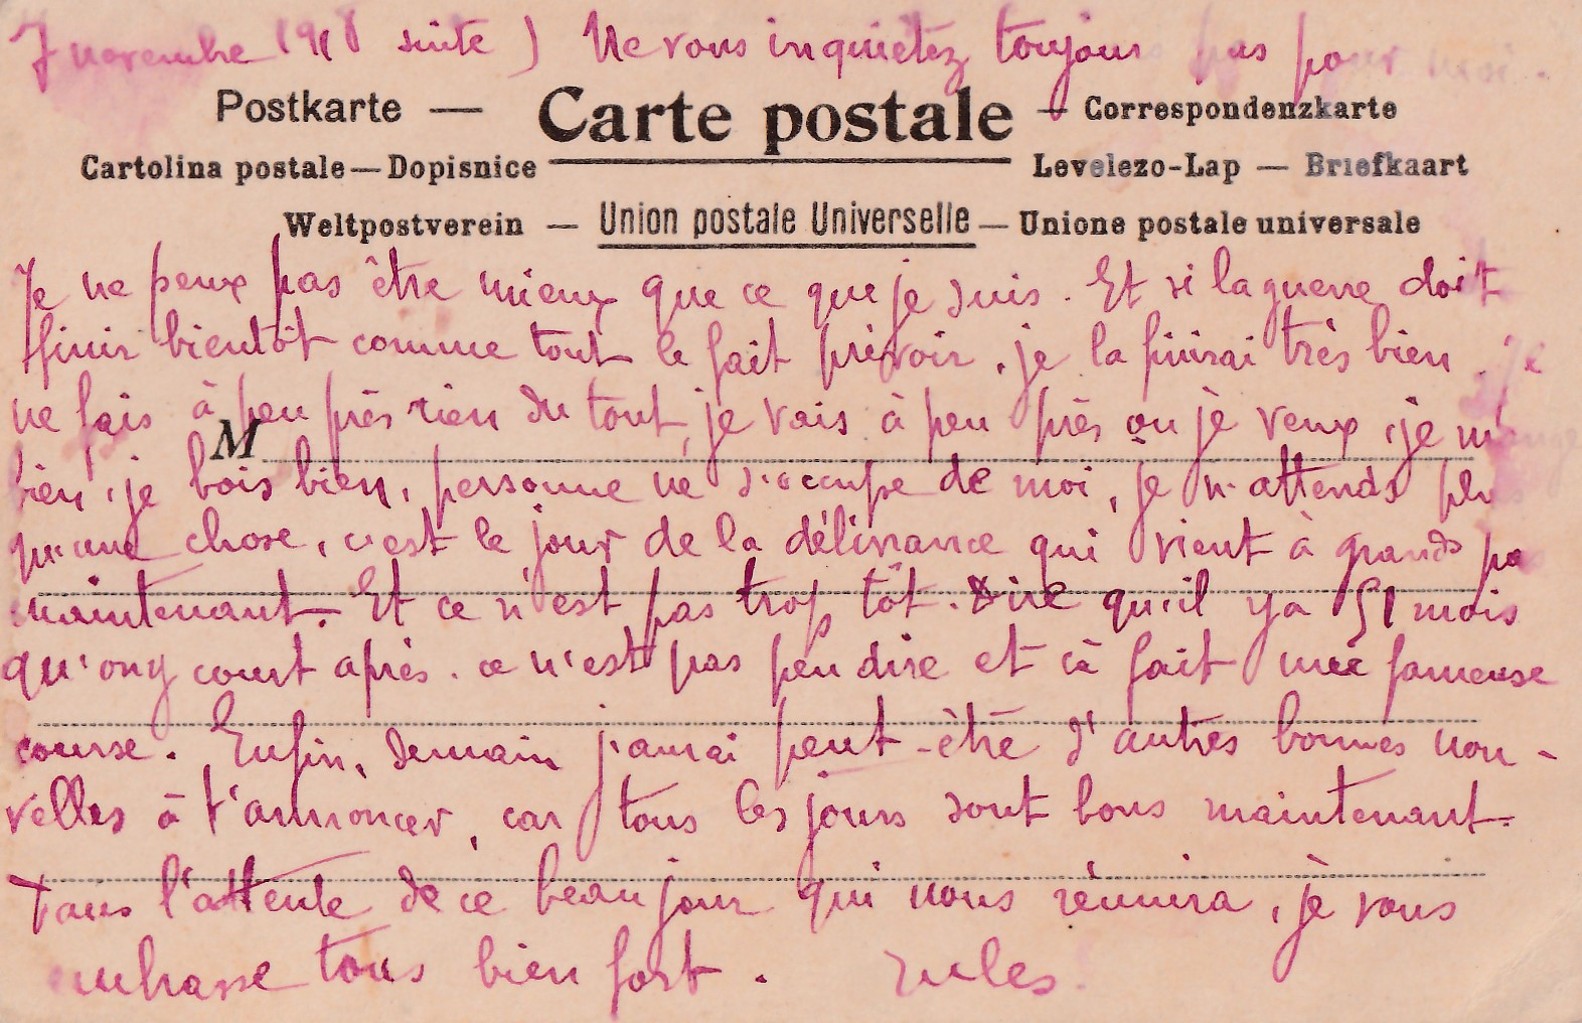 7 novembre 1918 suite ) Ne vous inquietez toujours pas pour moi.
Postkarte — Carte postale — Correspondenzkarte
Cartolina postale — Dopisnice Levelezo-Lap — Briefkaart
Weltpostverein — Union postale Universelle — Unione postale universale
Je ne peux pas être mieux que ce que je suis. Et si la guerre doit
finir bientôt comme tout le fait prévoir, je la finirai très bien. Je
ne fais à peu près rien du tout, je vais à peu près où je veux, je mange
M
bien, je bois bien, personne ne s'occupe de moi, je n'attends plus
qu'une chose, c'est le jour de la délivrance qui vient à grands pas
maintenant. Et ce n'est pas trop tôt. Dire qu'il y a 51 mois
qu'on y court après. ce n'est pas peu dire et cà fait une fameuse
course. Enfin, demain j'aurai peut-être d'autres bonnes nou-
velles à t'annoncer, car tous les jours sont bons maintenant.
Dans l'attente de ce beau jour qui nous réunira, je vous
embrasse tous bien fort. Jules